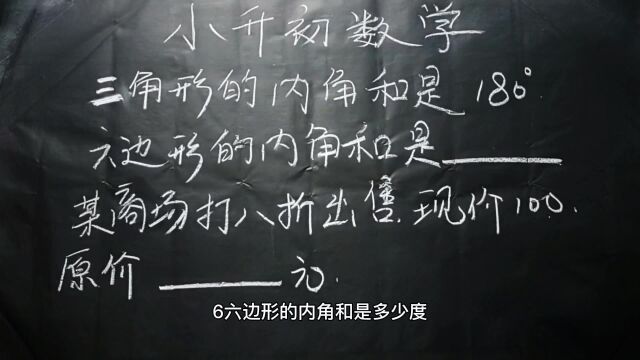 小升初数学
三角形的内角和是180°
六边形的内角和是______
某商场打八折出售.现价100.
原价______元.
6六边形的内角和是多少度